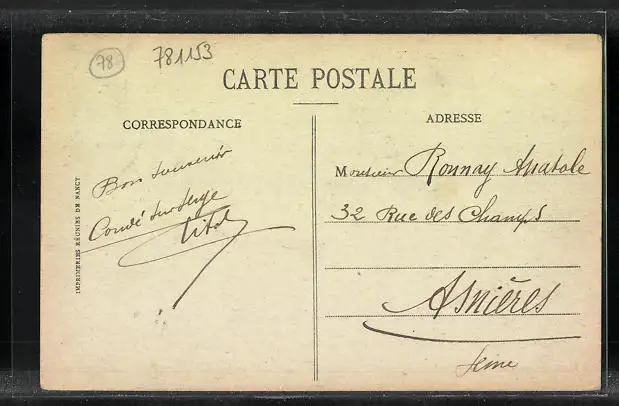 78
781153
CARTE POSTALE
CORRESPONDANCE
ADRESSE
Bon souvenir
Condé sur
Monsieur Ronnay Anatole
32 Rue des Champs
Asnières
Seine
IMPRIMERIES RÉUNIES DE NANCY